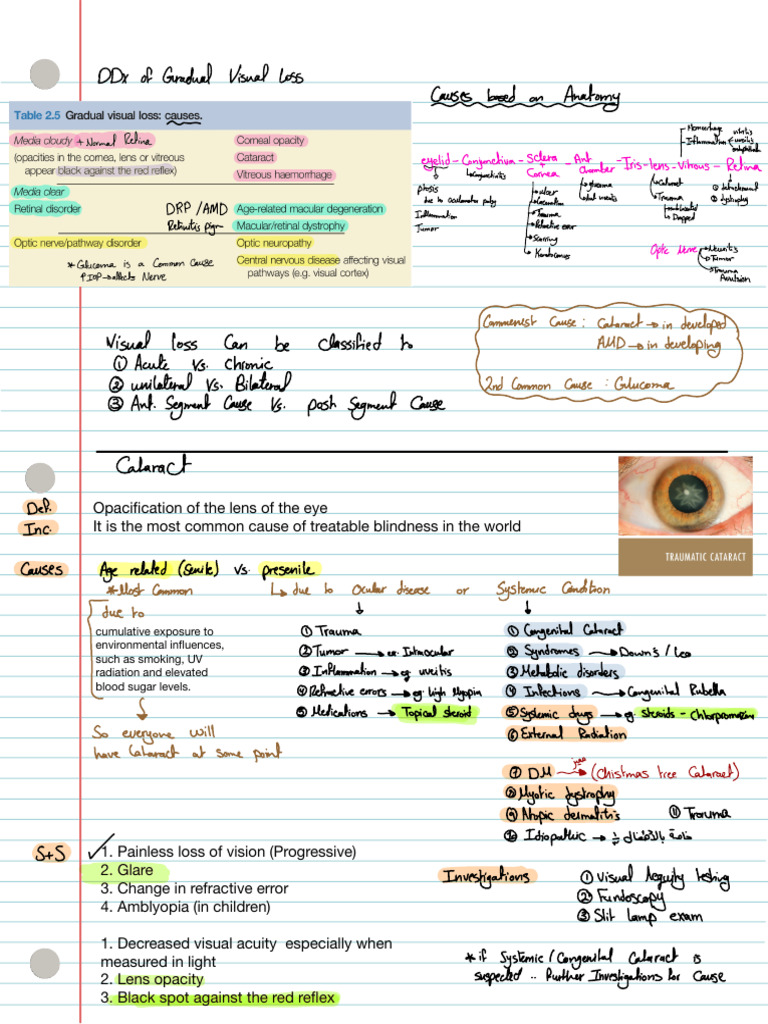 DDx of Gradual Visual Loss
Table 2.5 Gradual visual loss: causes.
Media cloudy + Normal Retina
Corneal opacity
(opacities in the cornea, lens or vitreous
Cataract
appear black against the red reflex)
Vitreous haemorrhage
Media clear
Retinal disorder
DRP / AMD
Age-related macular degeneration
Retinitis pigm
Macular/retinal dystrophy
Optic nerve/pathway disorder
Optic neuropathy
* Glucoma is a Common Cause
Central nervous disease affecting visual
↑IOP → affects Nerve
pathways (e.g. visual cortex)
Causes based on Anatomy
Hemorrhage
Inflammation
eyelid - Conjunctiva - Sclera + Cornea - Ant chamber - Iris - lens - Vitrous - Retina
ptosis
Inflammation
Tumor
Conjunctivitis
ulcer
Trauma
Refractive error
Scarring
Keratoconus
glucoma
Cataract
Trauma
① detachment
② dystrophy
Optic Nerve
Neuritis
Tumor
Trauma
Avulsion
Visual loss Can be Classified to
① Acute vs. Chronic
② unilateral vs. Bilateral
③ Ant. Segment Cause Vs. post Segment Cause
Commenest Cause: Cataract → in developed
AMD → in developing
2nd Common Cause: Glucoma
Cataract
Def. Opacification of the lens of the eye
Inc. It is the most common cause of treatable blindness in the world
TRAUMATIC CATARACT
Causes Age related (Senile) vs. presenile
* Most Common
↳ due to Ocular disease or Systemic Condition
due to
cumulative exposure to
environmental influences,
such as smoking, UV
radiation and elevated
blood sugar levels.
So everyone will
have Cataract at some point
① Trauma
② Tumor → ex. Intraocular
③ Inflammation → eg uveitis
④ Refractive errors → eg high Myopia
⑤ Medications → Topical steroid
① Congenital Cataract
② Syndromes → Down's /
③ Metabolic disorders
④ Infections → Congenital Rubella
⑤ Systemic drugs → eg. steroids - Chlorpromazine
⑥ External Radiation
⑦ DM → (Chistmas tree Cataract)
⑧ Myotic dystrophy
⑨ Atopic dermatitis
⑪ Trauma
⑩ Idiopathic →
S+S
✓1. Painless loss of vision (Progressive)
2. Glare
3. Change in refractive error
4. Amblyopia (in children)
1. Decreased visual acuity especially when
measured in light
2. Lens opacity
3. Black spot against the red reflex
Investigations
① Visual Aquity testing
② Fundoscopy
③ Slit lamp exam
* if Systemic / Congenital Cataract is
suspected .. Further Investigations for Cause